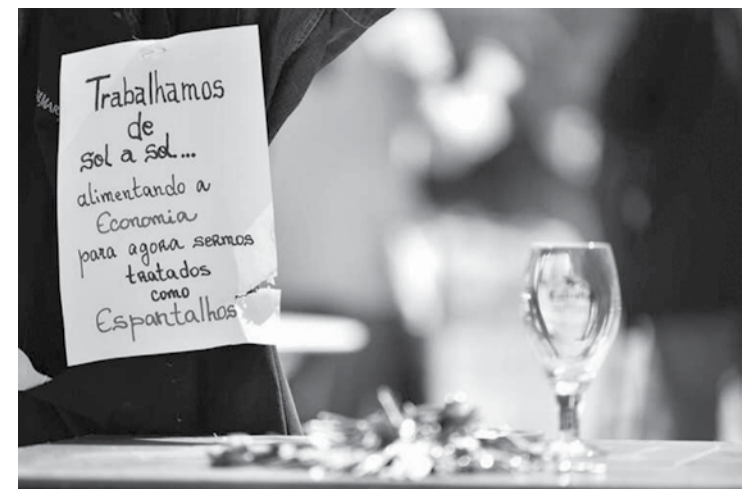 Trabalhamos
de
sol a sol...
alimentando a
Economia
para agora sermos
tratados
como
Espantalhos